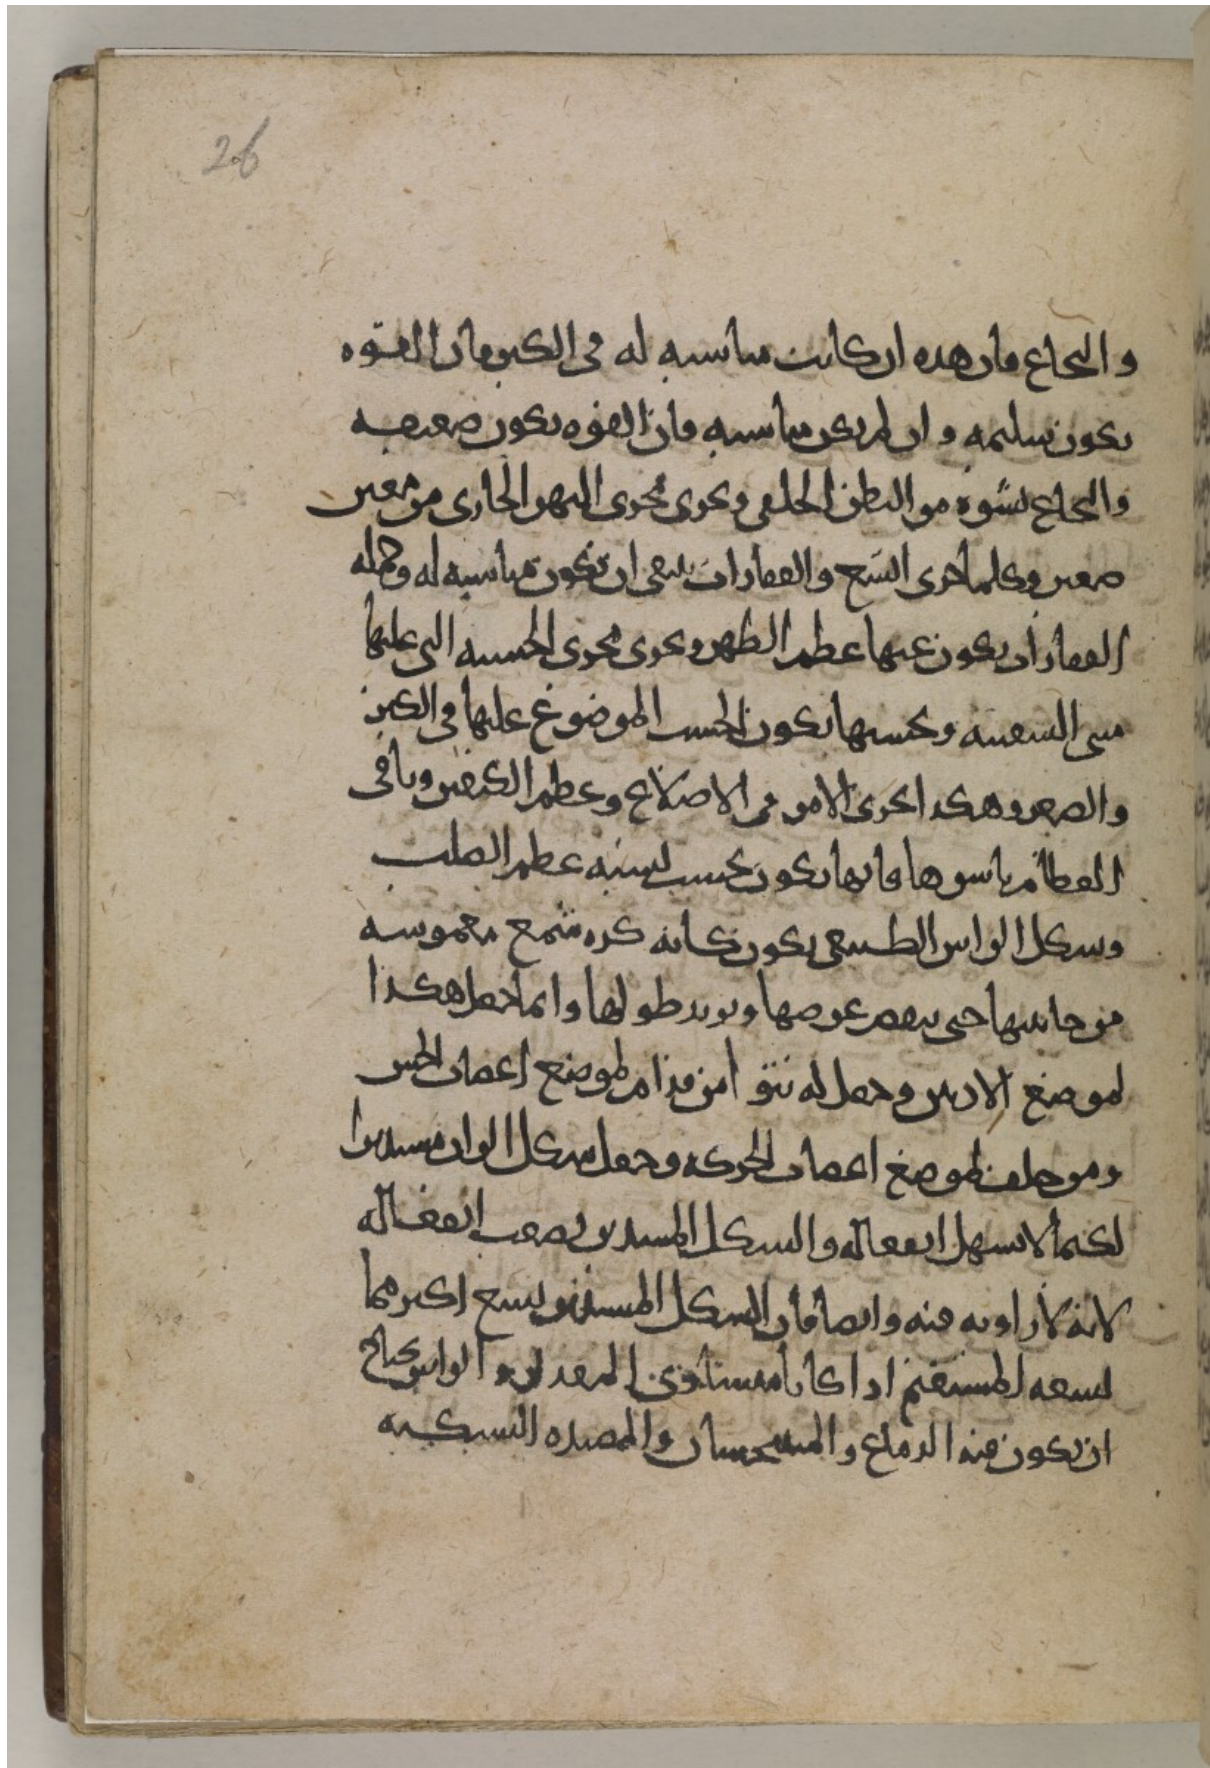 26
والنخاع فان هذه ان كانت مناسبه له في الكبر فان القوه
يكون سليمه وان لم يكن مناسبه فان القوه يكون ضعيفه
والنخاع نشوه من البطن الخلفي ويجري مجرى النهر الجاري من معين
وكلما جرى اتسع والفقارات ينبغي ان تكون مناسبه له وجمله
الفقارات يكون عنها عظم الظهر ويجري مجرى الخشبه التي عليها
مبنى السفينه وبحسبها يكون الخشب الموضوع عليها في الكبر
والصغر وهكذا يجري الامر في الاضلاع وعظم الكتفين وباقي
العظام باسرها فانها يكون بحسب نسبه عظم الصلب
وشكل الراس الطبيعي يكون كانه كره شمع مغموسه
من جانبيها حتى ينقص عرضها ويزيد طولها وانما جعل هكذا
لموضع الاذنين وجعل له نتوا من قدام لموضع اعصاب الحس
ومن خلف لموضع اعصاب الحركه وجعل شكل الراس مستديرا
لكيما لا يسهل انفعاله والشكل المستدير يصعب انفعاله
لانه لا زاويه فيه وايضا فان الشكل المستدير يسع اكثر مما
يسعه المستقيم اذا كانا متساوي المقدار والراس يحتاج
ان يكون فيه الدماغ والغشا والمصيده الشبكيه